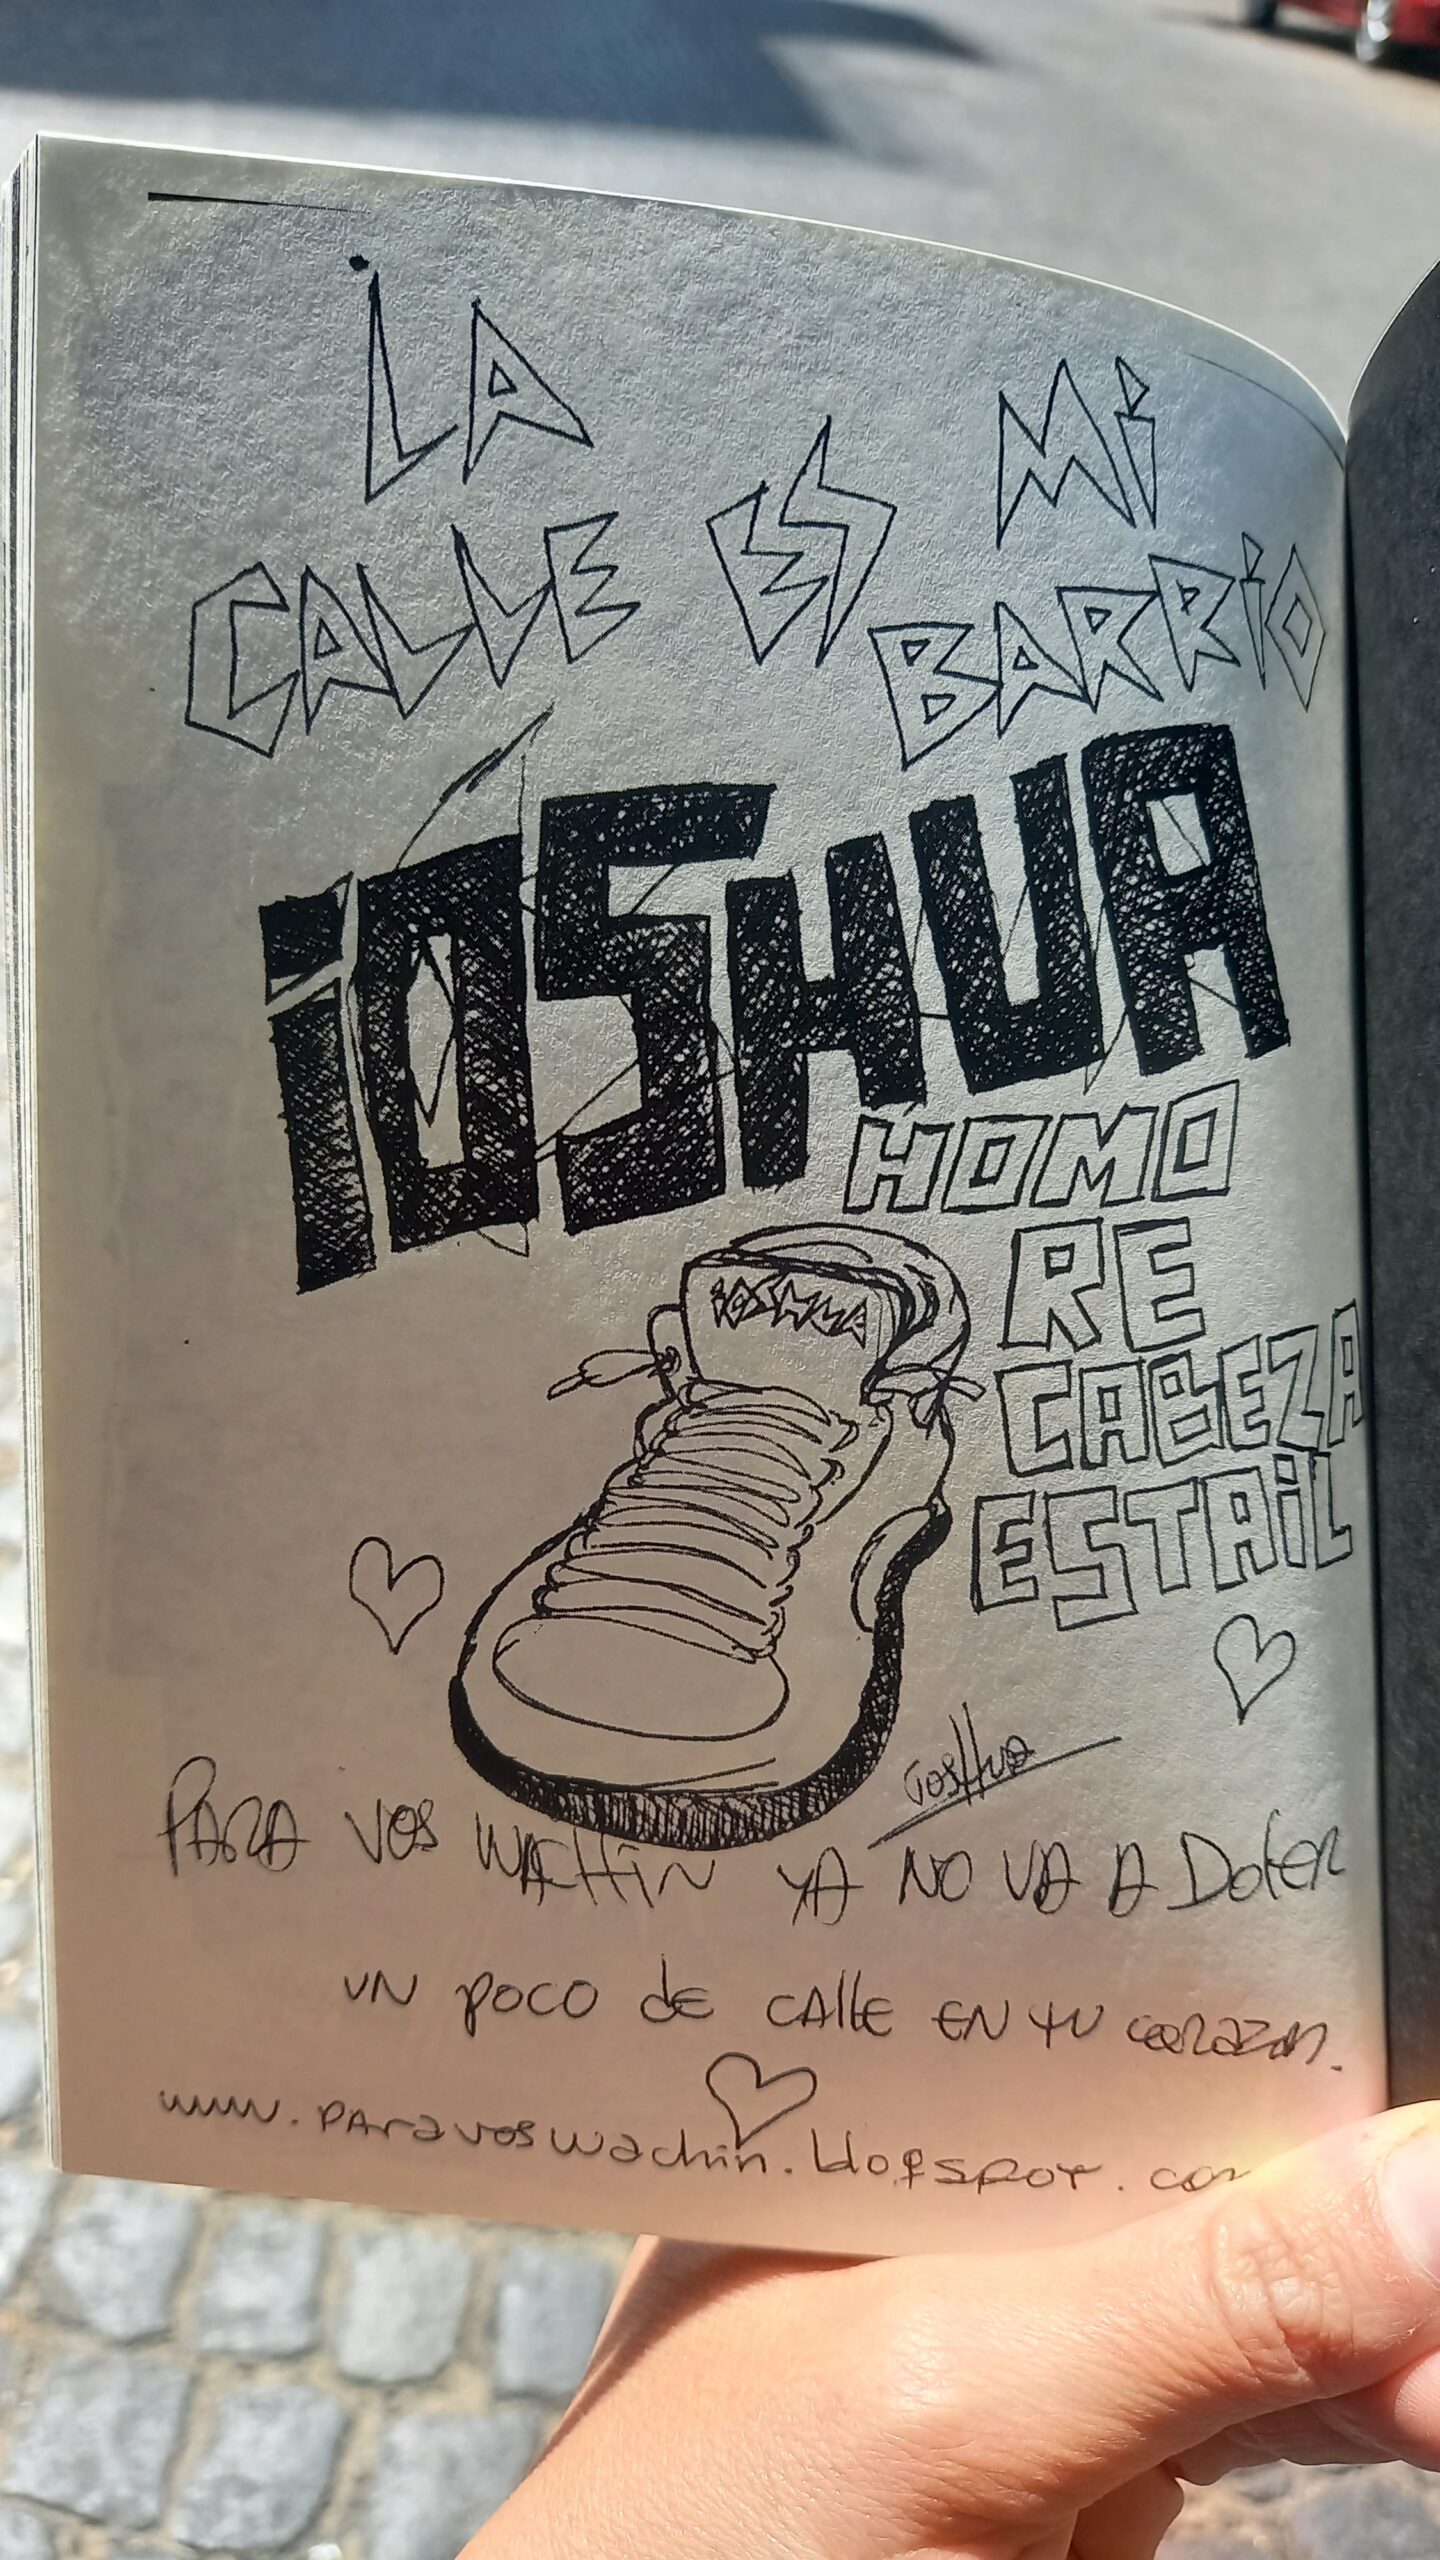 LA
CALLE ES MI
BARRIO
iOSHUA
HOMO
RE
CABEZA
ESTAiL
iOSHUA
iOSHUA
PARA VOS WACHiN YA NO VA A DOLER
UN POCO DE CALLE EN tU CORAZON.
www.paravoswachin.blogspot.com